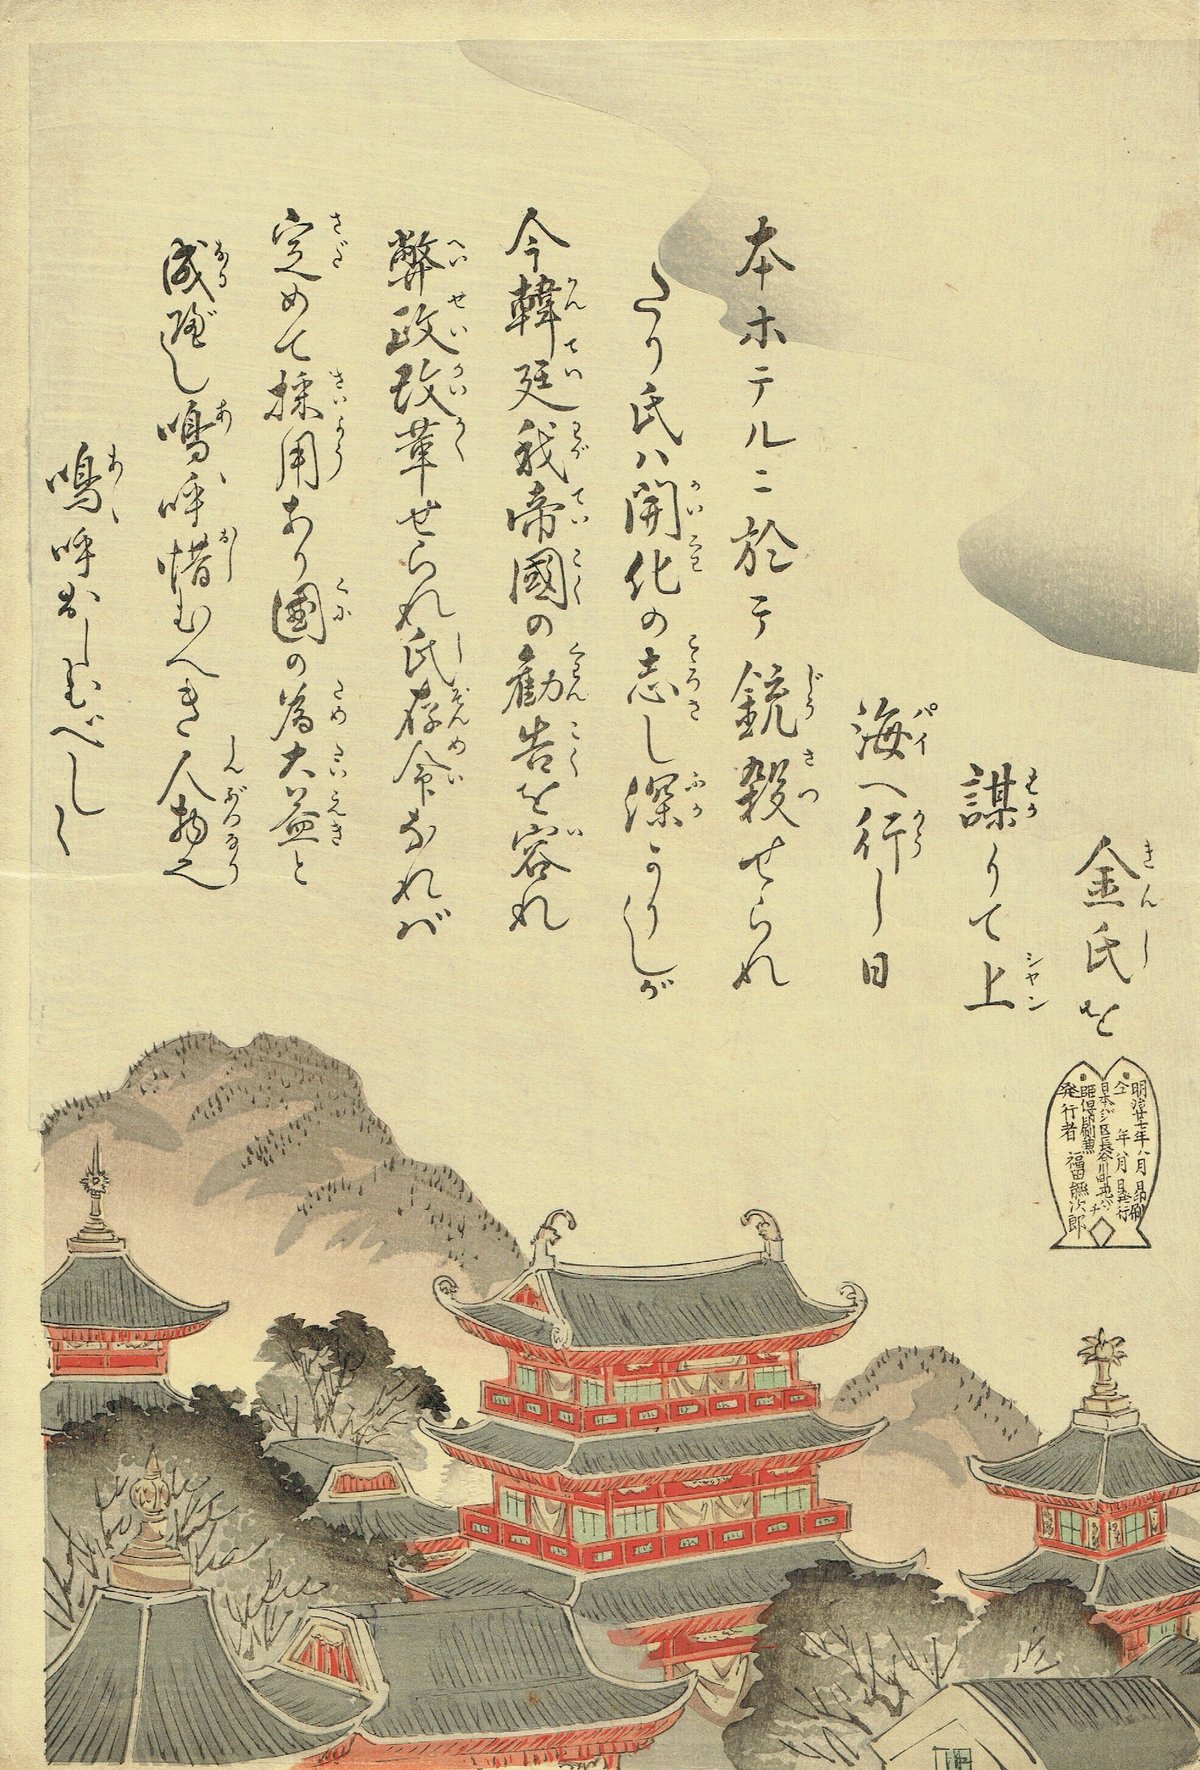 金氏を
謀りて上
海へ行し日
本ホテルニ於テ銃殺せられ
たり氏ハ開化の志し深かりしが
今韓廷我帝國の勧告を容れ
弊政改革せられ氏存命なれバ
定めて採用あり國の為大益と
成べし嗚呼惜むへき人物也
嗚呼おしむべし〱
明治廿七年八月 日印刷
仝 年八月 日発行
日本バシ区長谷川町
印刷兼
発行者 福田熊次郎